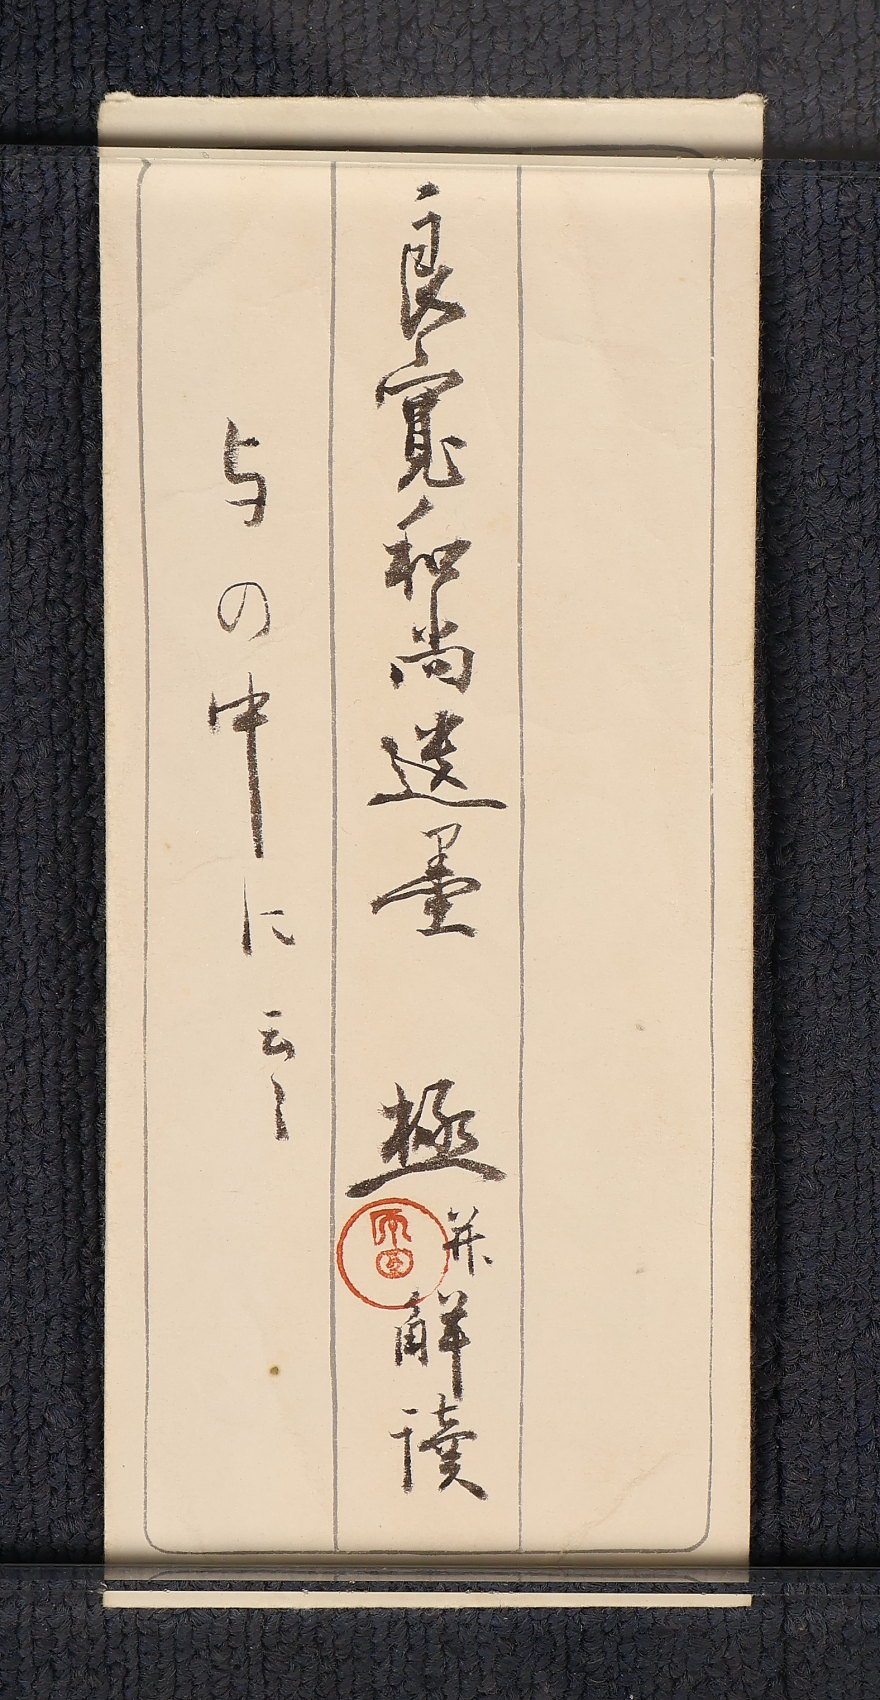 良寛和尚遺墨 極 并 解読
与の中に云々